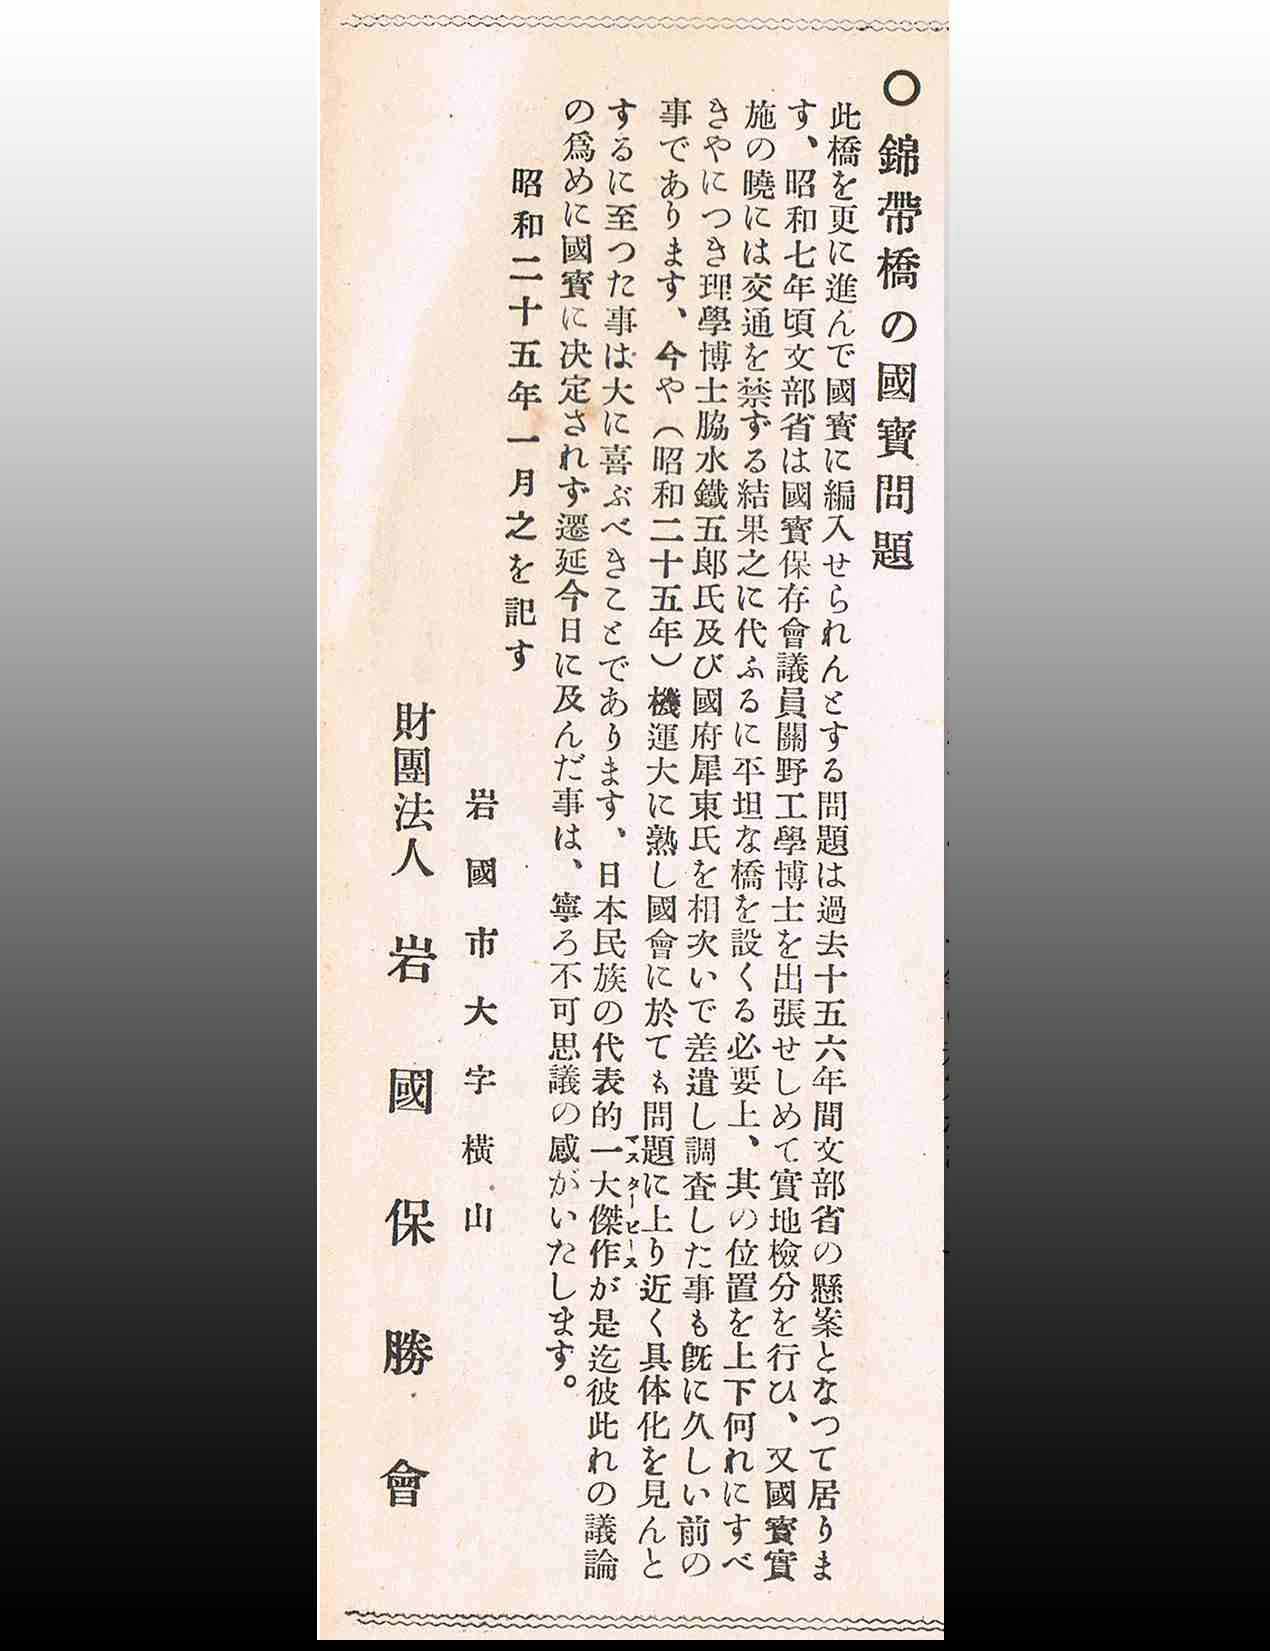 ○錦帶橋の國寳問題
此橋を更に進んで國寳に編入せられんとする問題は過去十五六年間文部省の懸案となつて居りま
す、昭和七年頃文部省は國寳保存會議員關野工學博士を出張せしめて實地檢分を行ひ、又國寳實
施の曉には交通を禁ずる結果之に代ふるに平坦な橋を設くる必要上、其の位置を上下何れにすべ
きやにつき理學博士脇水鐵五郎氏及び國府犀東氏を相次いで差遣し調査した事も既に久しい前の
事であります、今や（昭和二十五年）機運大に熟し國會に於ても問題に上り近く具体化を見んと
するに至つた事は大に喜ぶべきことであります、日本民族の代表的一大傑作が是迄彼此れの議論
マスターピース
の爲めに國寳に決定されず遷延今日に及んだ事は、寧ろ不可思議の感がいたします。
昭和二十五年一月之を記す
岩國市大字橫山
財團法人岩國保勝會